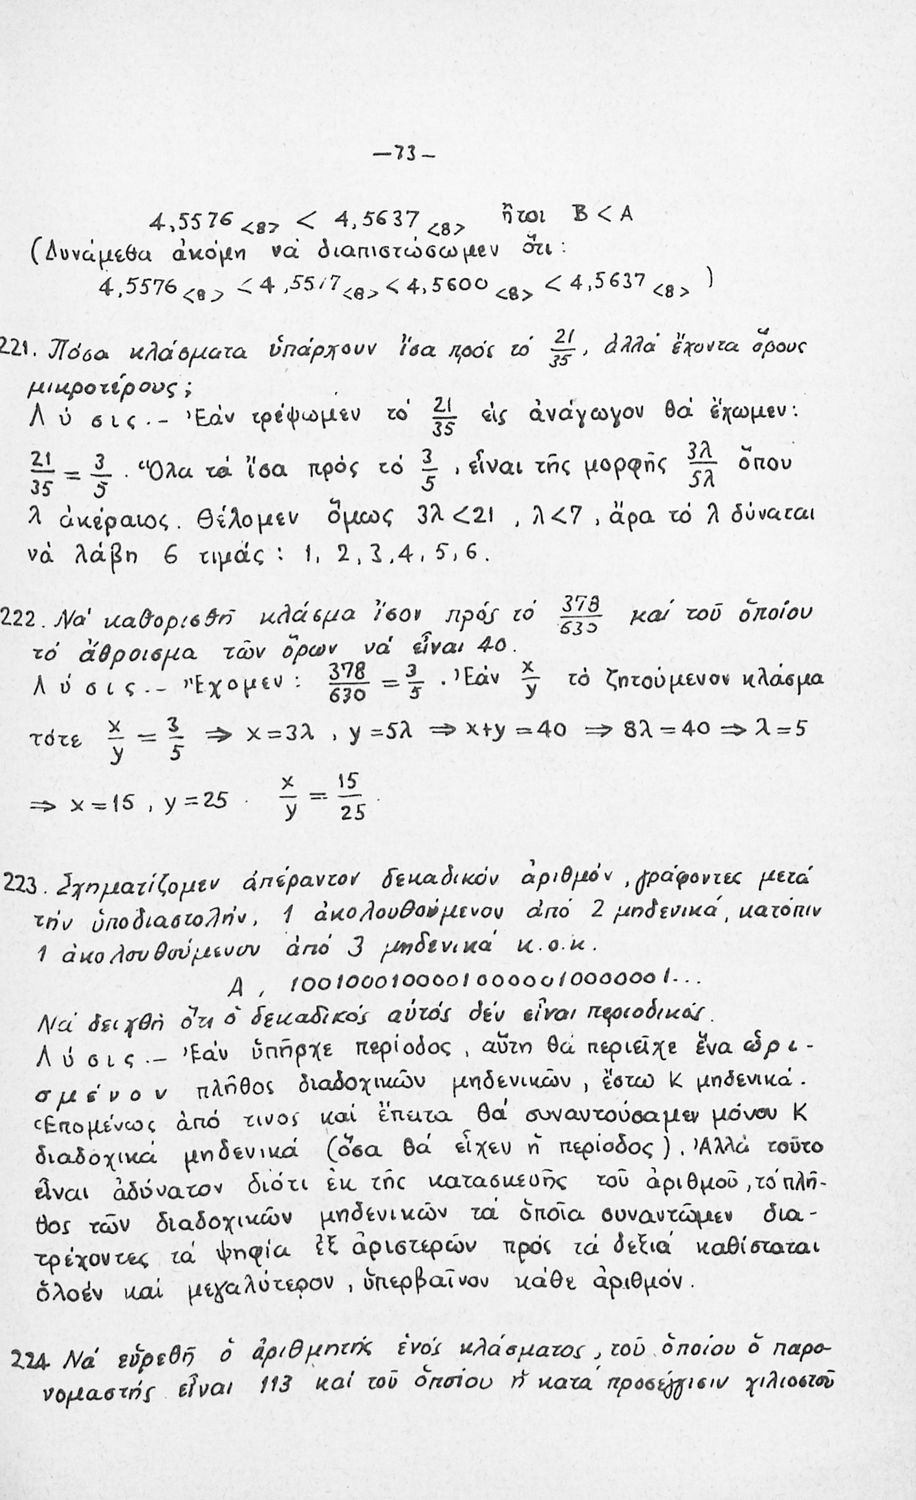 —73—
4,5576<8> < 4,5637<8> ἤτοι B < A
(Δυνάμεθα ἀκόμη νὰ διαπιστώσωμεν ὅτι:
4,5576<8> < 4,5577<8> < 4,5600<8> < 4,5637<8> )
221. Πόσα κλάσματα ὑπάρχουν ἴσα πρός τό 21/35, ἀλλά ἔχοντα ὅρους
μικροτέρους;
Λύσις.- Ἐάν τρέψωμεν τό 21/35 εἰς ἀνάγωγον θά ἔχωμεν:
21/35 = 3/5. Ὅλα τά ἴσα πρός τό 3/5, εἶναι τῆς μορφῆς 3λ/5λ ὅπου
λ ἀκέραιος. Θέλομεν ὅμως 3λ<21, λ<7, ἄρα τό λ δύναται
νὰ λάβη 6 τιμάς: 1, 2, 3, 4, 5, 6.
222. Νά καθορισθῆ κλάσμα ἴσον πρός τό 378/630 καί τοῦ ὁποίου
τό ἄθροισμα τῶν ὅρων νά εἶναι 40.
Λύσις.- Ἔχομεν: 378/630 = 3/5. Ἐάν x/y τό ζητούμενον κλάσμα
τότε x/y = 3/5 ⇒ x=3λ, y=5λ ⇒ x+y=40 ⇒ 8λ=40 ⇒ λ=5
⇒ x=15, y=25. x/y = 15/25.
223. Σχηματίζομεν ἀπέραντον δεκαδικόν ἀριθμόν, γράφοντες μετά
τήν ὑποδιαστολήν, 1 ἀκολουθούμενον ἀπό 2 μηδενικά, κατόπιν
1 ἀκολουθούμενον ἀπό 3 μηδενικά κ.ο.κ.
A, 10010001000010000010000001...
Νά δειχθῆ ὅτι ὁ δεκαδικός αὐτός δέν εἶναι περιοδικός.
Λύσις.- Ἐάν ὑπῆρχε περίοδος, αὕτη θά περιεῖχε ἕνα ὡρι-
σμένον πλῆθος διαδοχικῶν μηδενικῶν, ἔστω Κ μηδενικά.
Ἑπομένως ἀπό τινος καί ἔπειτα θά συναντούσαμεν μόνον Κ
διαδοχικά μηδενικά (ὅσα θά εἶχεν ἡ περίοδος). Ἀλλά τοῦτο
εἶναι ἀδύνατον διότι ἐκ τῆς κατασκευῆς τοῦ ἀριθμοῦ, τό πλῆ-
θος τῶν διαδοχικῶν μηδενικῶν τά ὁποῖα συναντῶμεν δια-
τρέχοντες τά ψηφία ἐξ ἀριστερῶν πρός τά δεξιά καθίσταται
ὁλοέν καί μεγαλύτερον, ὑπερβαῖνον κάθε ἀριθμόν.
224. Νά εὑρεθῆ ὁ ἀριθμητής ἑνός κλάσματος, τοῦ ὁποίου ὁ παρο-
νομαστής εἶναι 113 καί τοῦ ὁποίου ἡ κατά προσέγγισιν χιλιοστοῦ